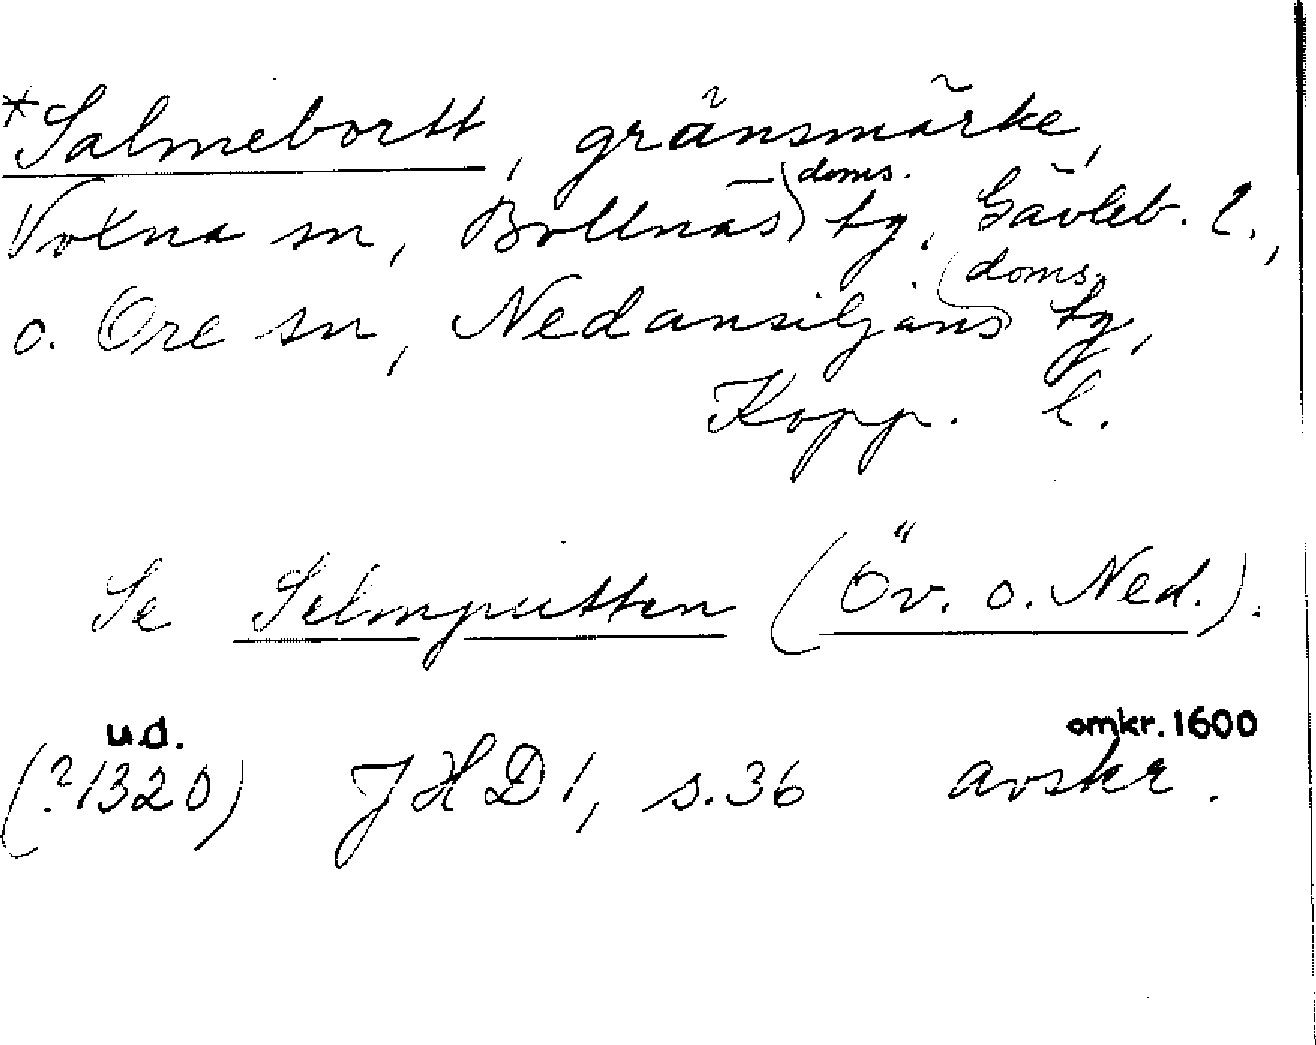 *Salmebortt, gränsmärke,
Voxna sn, Bollnäs doms. tg, Gävleb. l.,
o. Ore sn, Nedansiljans doms. tg,
Kopp. l.
Se Selmputten (Öv. o. Ned.).
u.d. omkr. 1600
(?1320) JHD 1, s. 36 avskr.